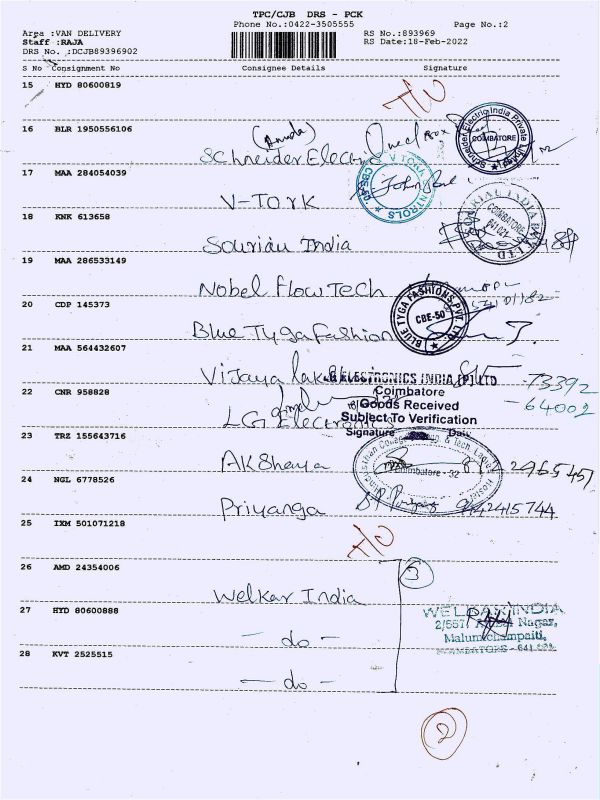 TPC/CJB DRS - PCK
Phone No.:0422-3505555 Page No.:2
Area :VAN DELIVERY RS No.:893969
Staff :RAJA RS Date:18-Feb-2022
DRS No. :DCJB89396902
S No Consignment No Consignee Details Signature
15 HYD 80600819
16 BLR 1950556106
Schneider Electric
17 MAA 284054039
V-Tork
18 KNK 613658
Souriau India
19 MAA 286533149
Nobel Flow Tech
20 CDP 145373
Blue Tyga Fashion
21 MAA 564432607
Vijaya
LG ELECTRONICS INDIA (P) LTD
Coimbatore
73392
22 CNR 958828
Goods Received
- 64002
Subject To Verification
LG Electronics
Signature Date
23 TRZ 155643716
Akshaya
24 NGL 6778526
Priyanga 9842415744
25 IXM 501071218
26 AMD 24354006
3
Welkar India
27 HYD 80600888
- do -
28 KVT 2525515
- do -
2
Schneider Electric India Private Limited
COIMBATORE
V TORK CONTROLS
COIMBATORE
641 021
BLUE TYGA FASHIONS PVT. LTD.
CBE-50
Coimbatore - 32
Hostel
INDIA
Nagar,